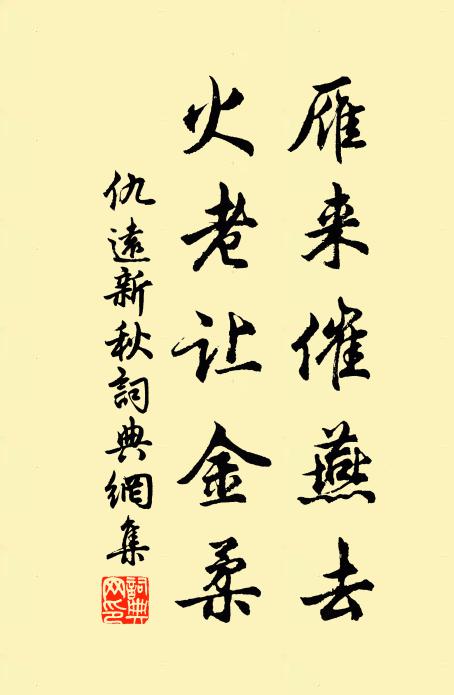 雁来催燕去
火老让金柔
仇遠新秋詞典網集
詞典网印